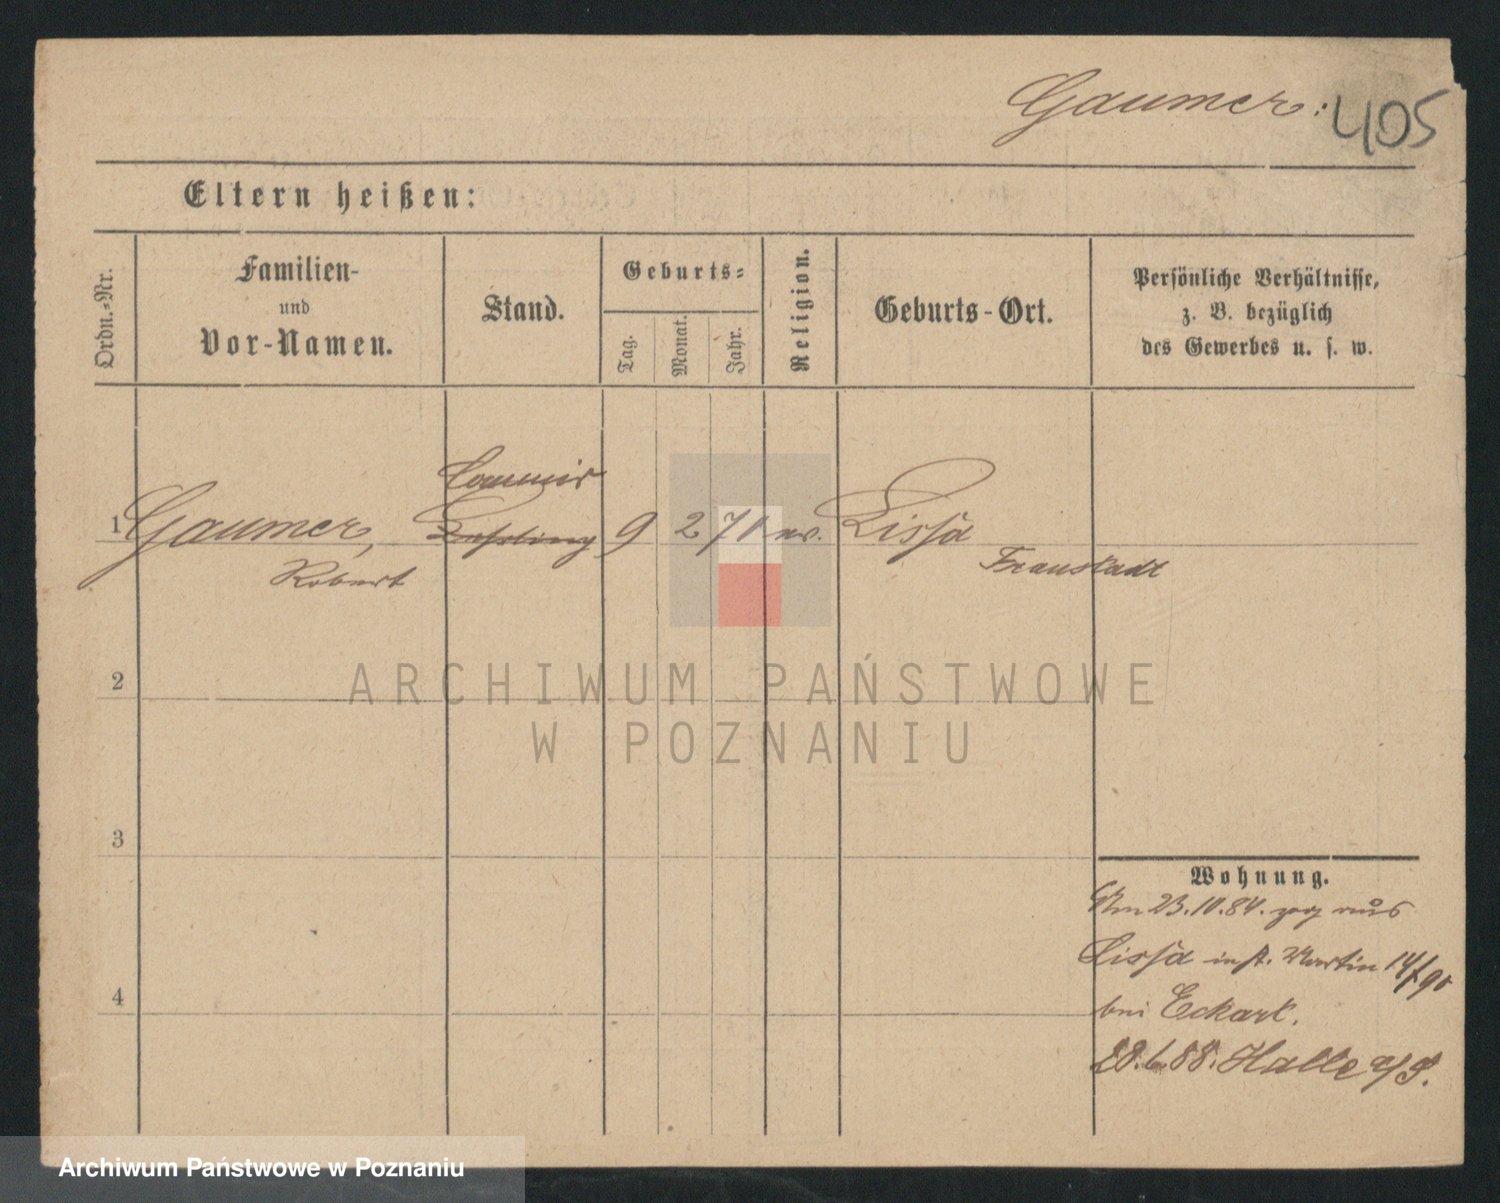 Gaumer: 405
Eltern heißen:
Ordn.-Nr.
Familien-
und
Vor-Namen.
Stand.
Geburts-
Tag.
Monat.
Jahr.
Religion.
Geburts-Ort.
Persönliche Verhältnisse,
z. B. bezüglich
des Gewerbes u. s. w.
Commis
1 Gaumer, Lehrling 9 2 70 ev. Lissa
Robert Fraustadt
2
3
4
Wohnung.
Am 23.10.84. zog aus
Lissa in St. Martin 14/90
bei Eckart.
28.6.88. Halle a/S.
ARCHIWUM PAŃSTWOWE
W POZNANIU
Archiwum Państwowe w Poznaniu